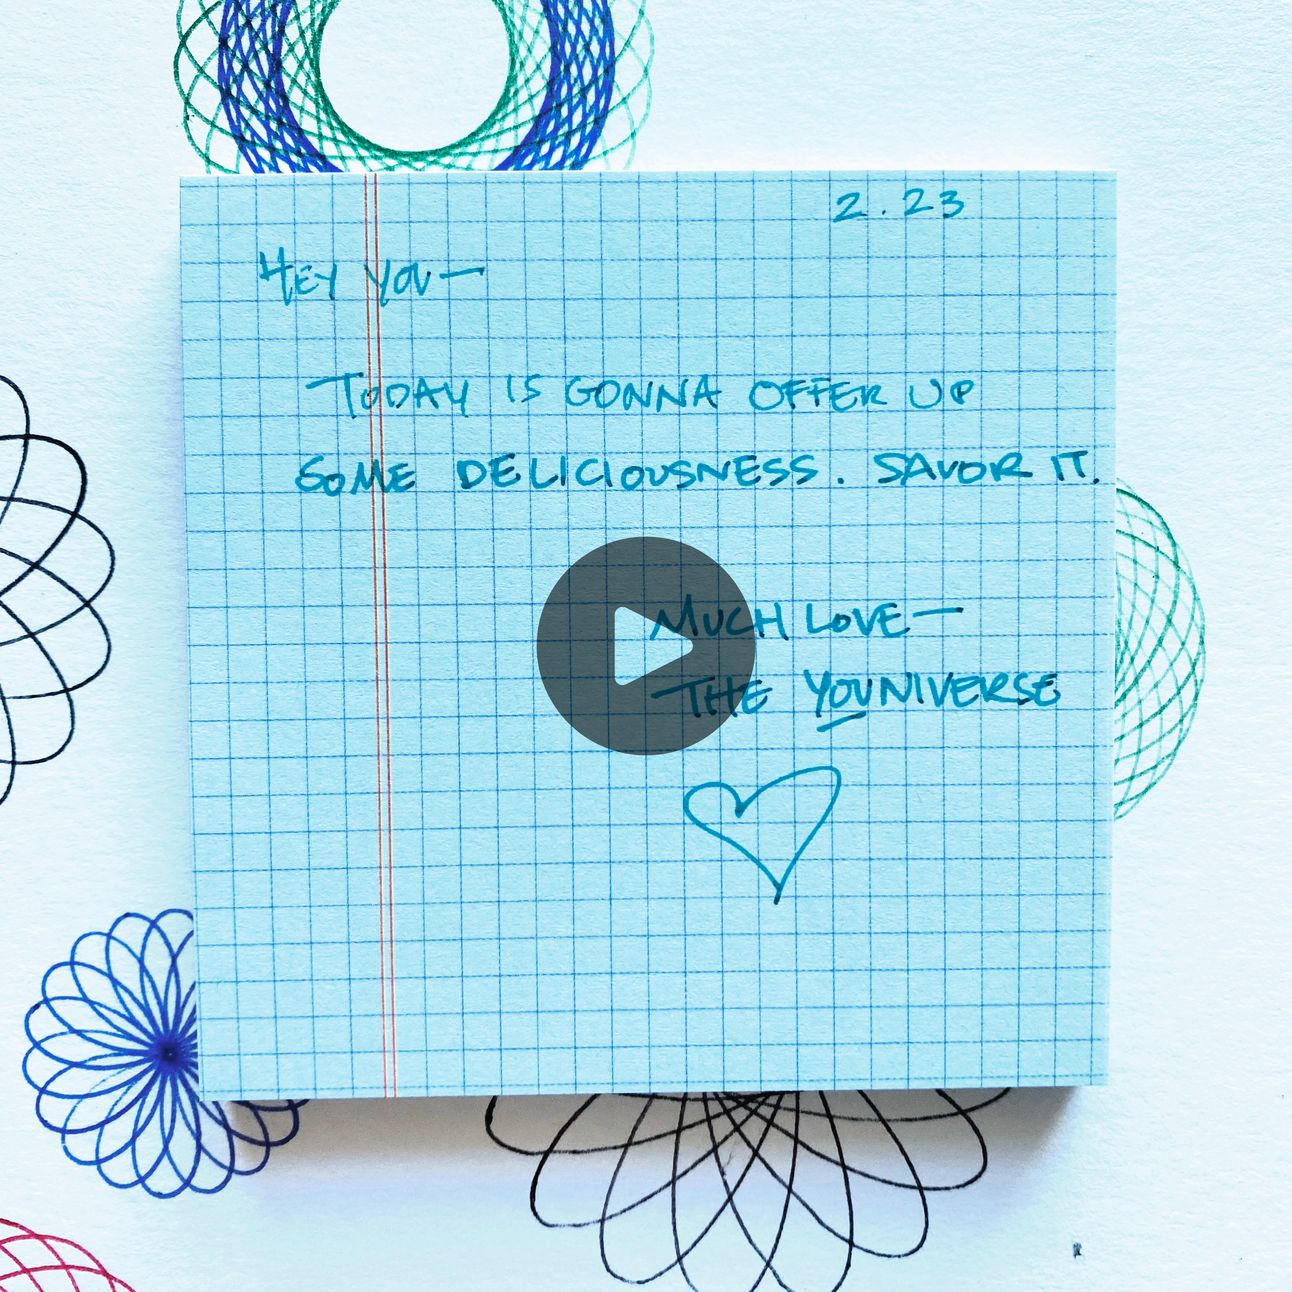 2.23
HEY YOU—
TODAY IS GONNA OFFER UP
SOME DELICIOUSNESS. SAVOR IT.
MUCH LOVE—
THE YOUNIVERSE